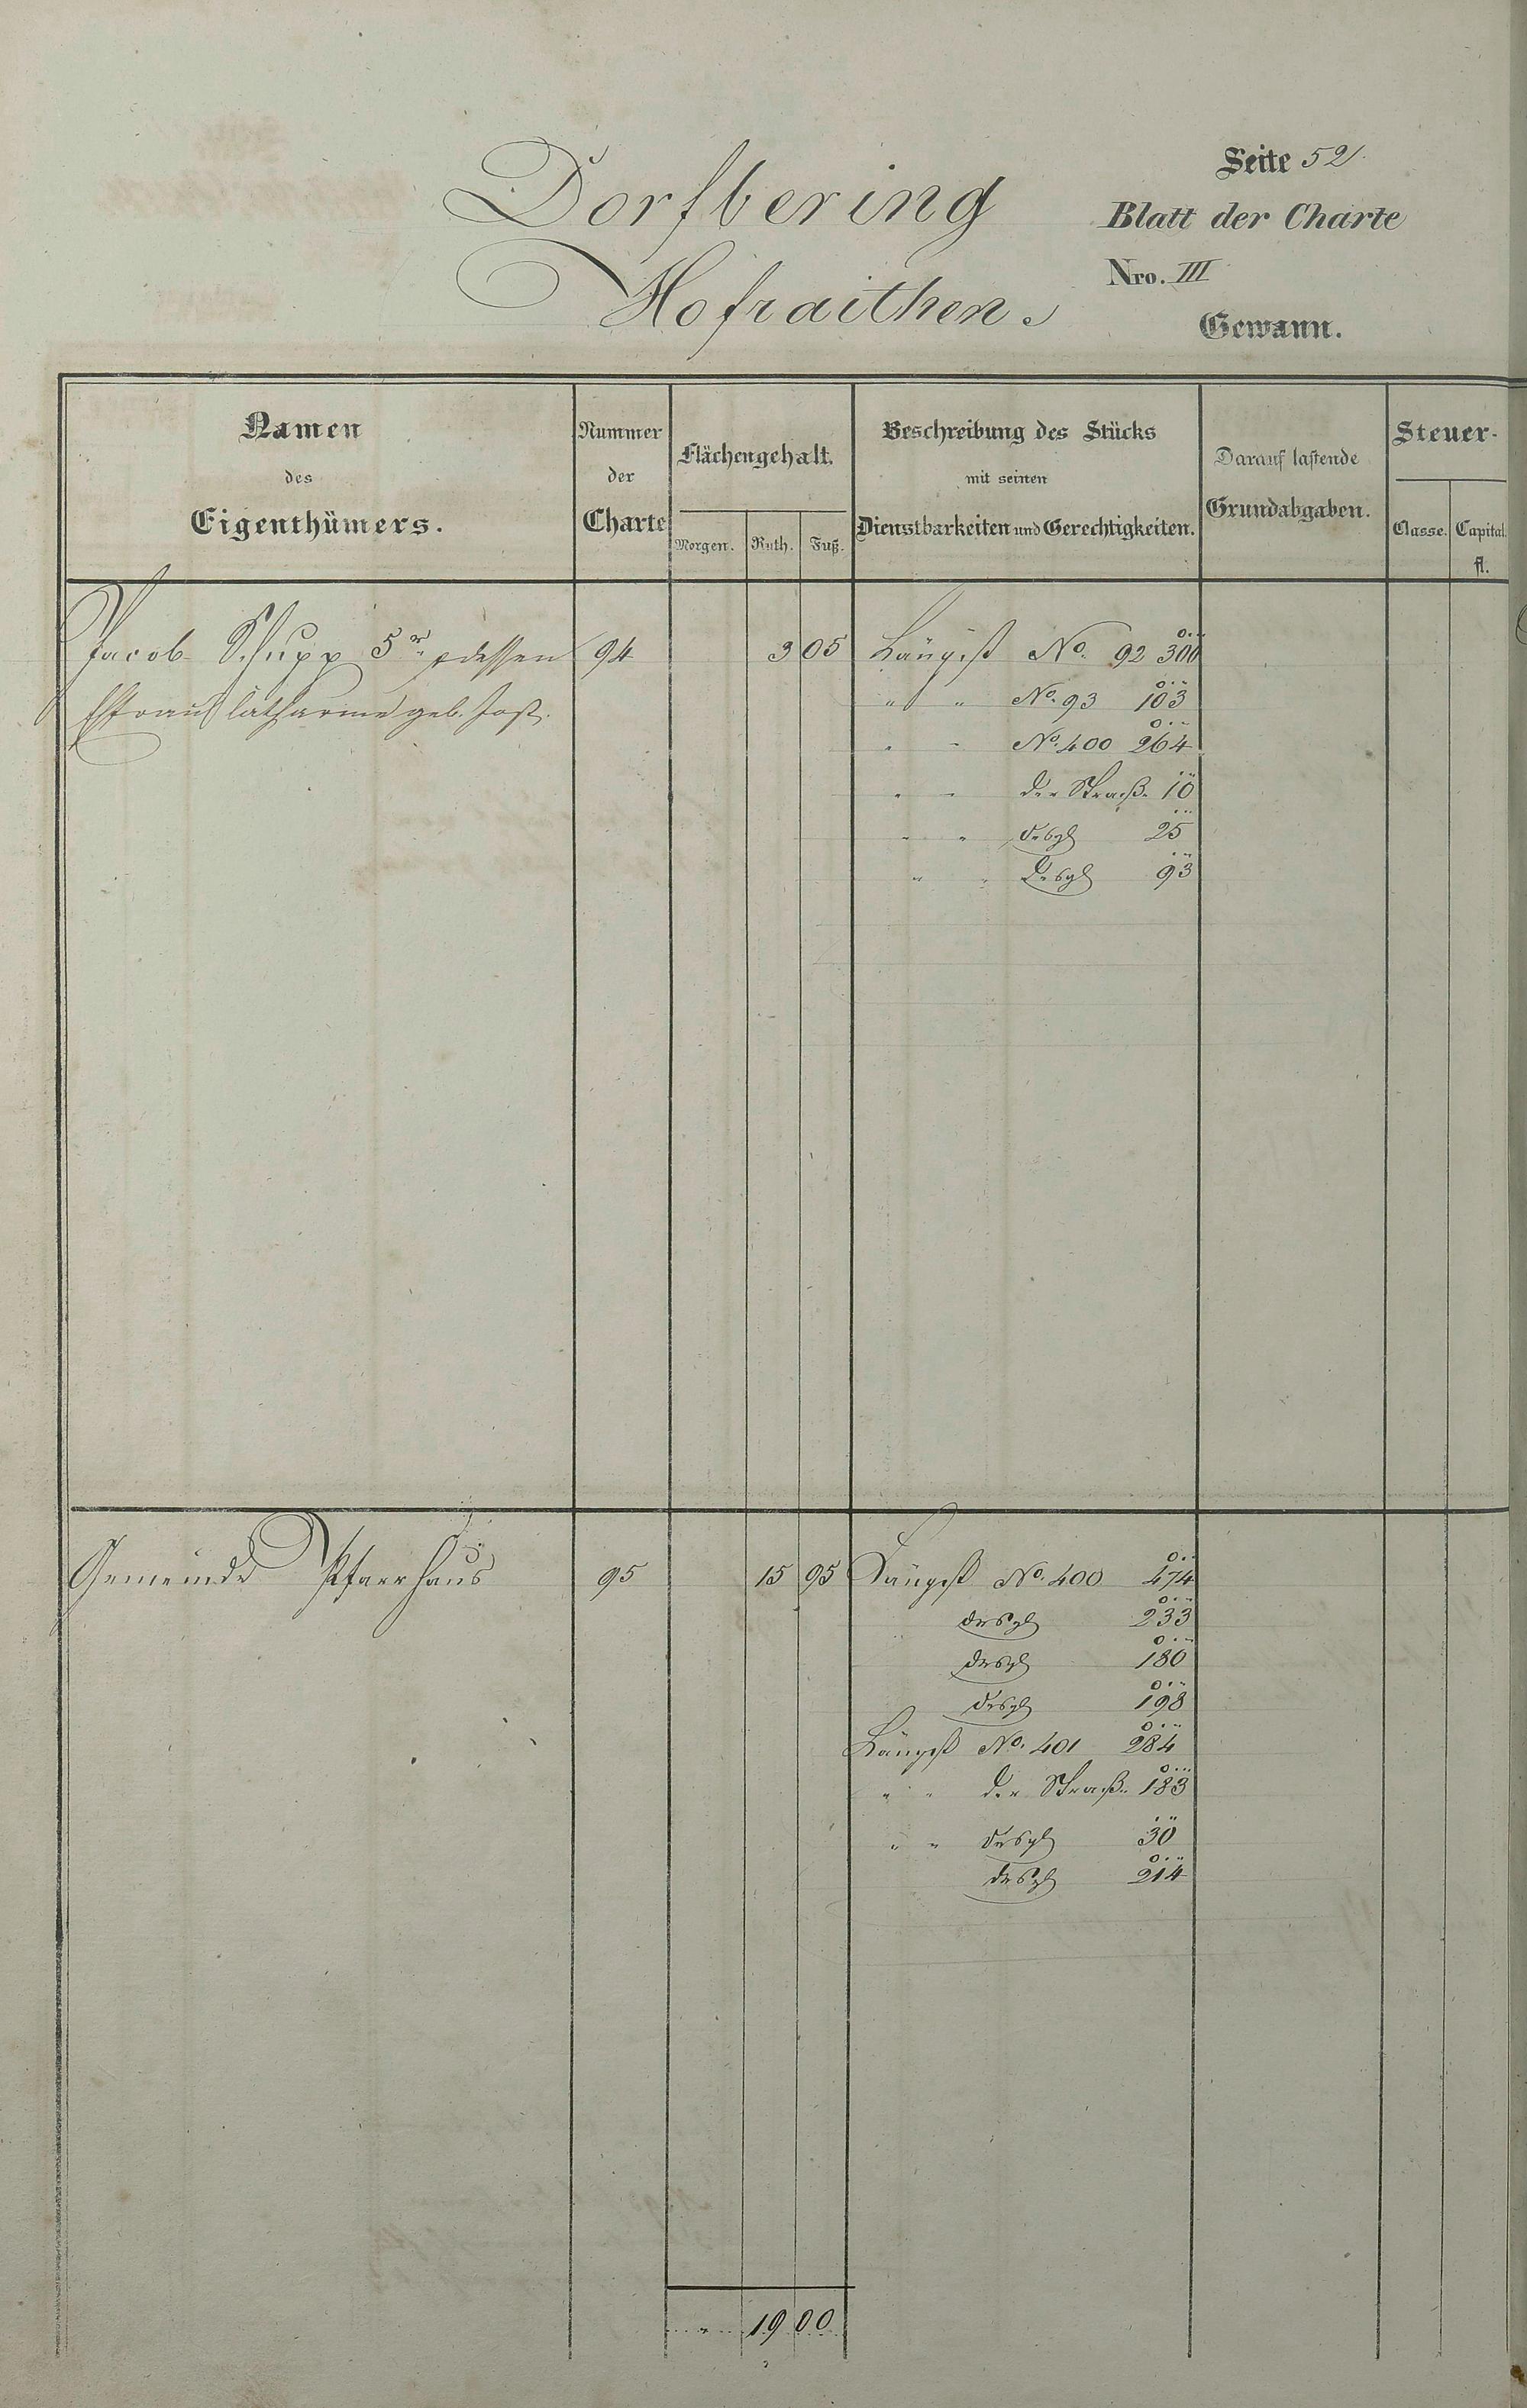 Dorfbering
Hofraithen.
Seite 52.
Blatt der Charte
Nro. III
Gewann.
Namen
des
Eigenthümers.
Nummer
der
Charte
Flächengehalt.
Morgen. Ruth. Fuß.
Beschreibung des Stücks
mit seinen
Dienstbarkeiten und Gerechtigkeiten.
Darauf lastende
Grundabgaben.
Steuer-
Classe. Capital.
fl.
Jacob Schupp 5r dessen 94 3 05 Längst No. 92 300
Ehefrau Catharine geb. Jost. " " No. 93 103
" " No. 400 264
" " der Straße 10
" " desgl 25
" " desgl 93
Gemeinde Pfarrhaus 95 15 95 Längst No. 400 474
desgl 233
desgl 180
desgl 198
Längst No. 401 284
" " der Straße 183
" " desgl 30
desgl 214
" 19 00